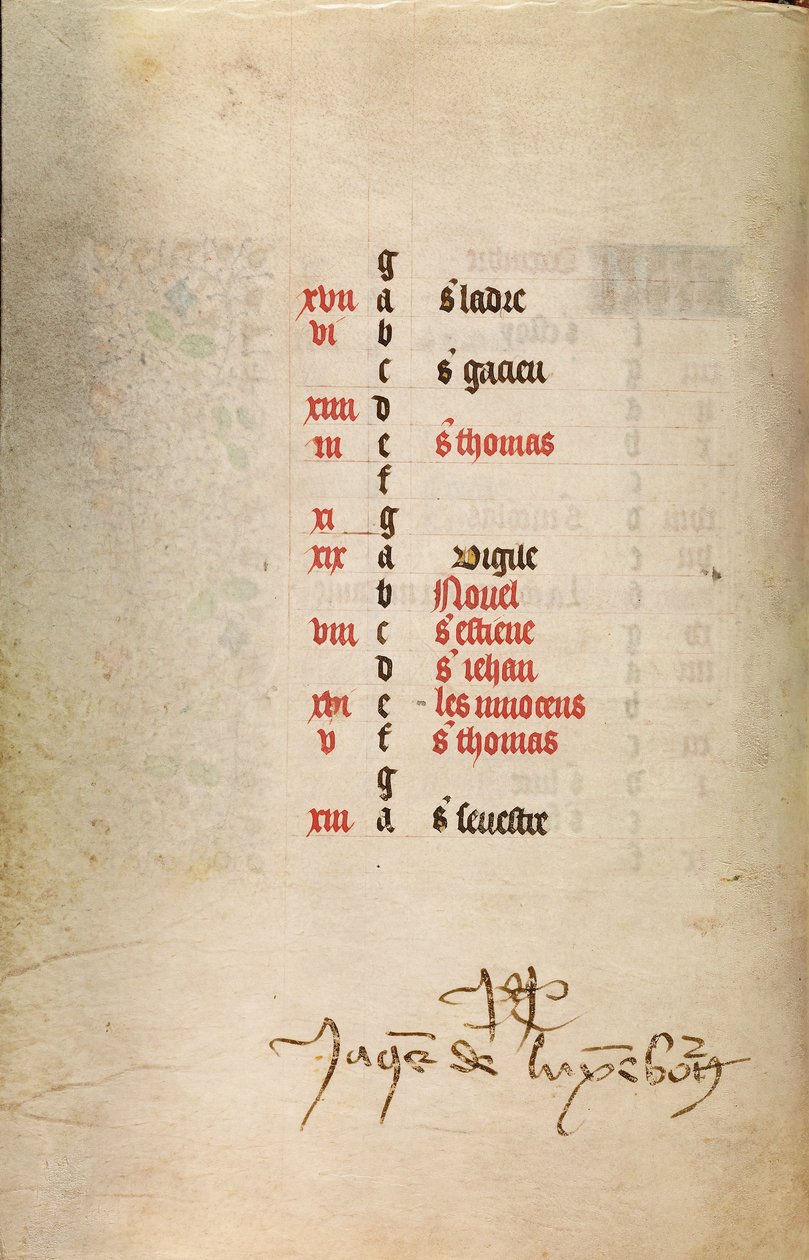 g
xvii a s̄ ladre
vi b
c s̄ gacien
xiiii d
iii e s̄ thomas
f
xi g
xix a vigile
b Nouel
viii c s̄ estiene
d s̄ iehan
xvi e les innocens
v f s̄ thomas
g
xiii a s̄ seuestre
Jaq̄s de lux̄ēbourg